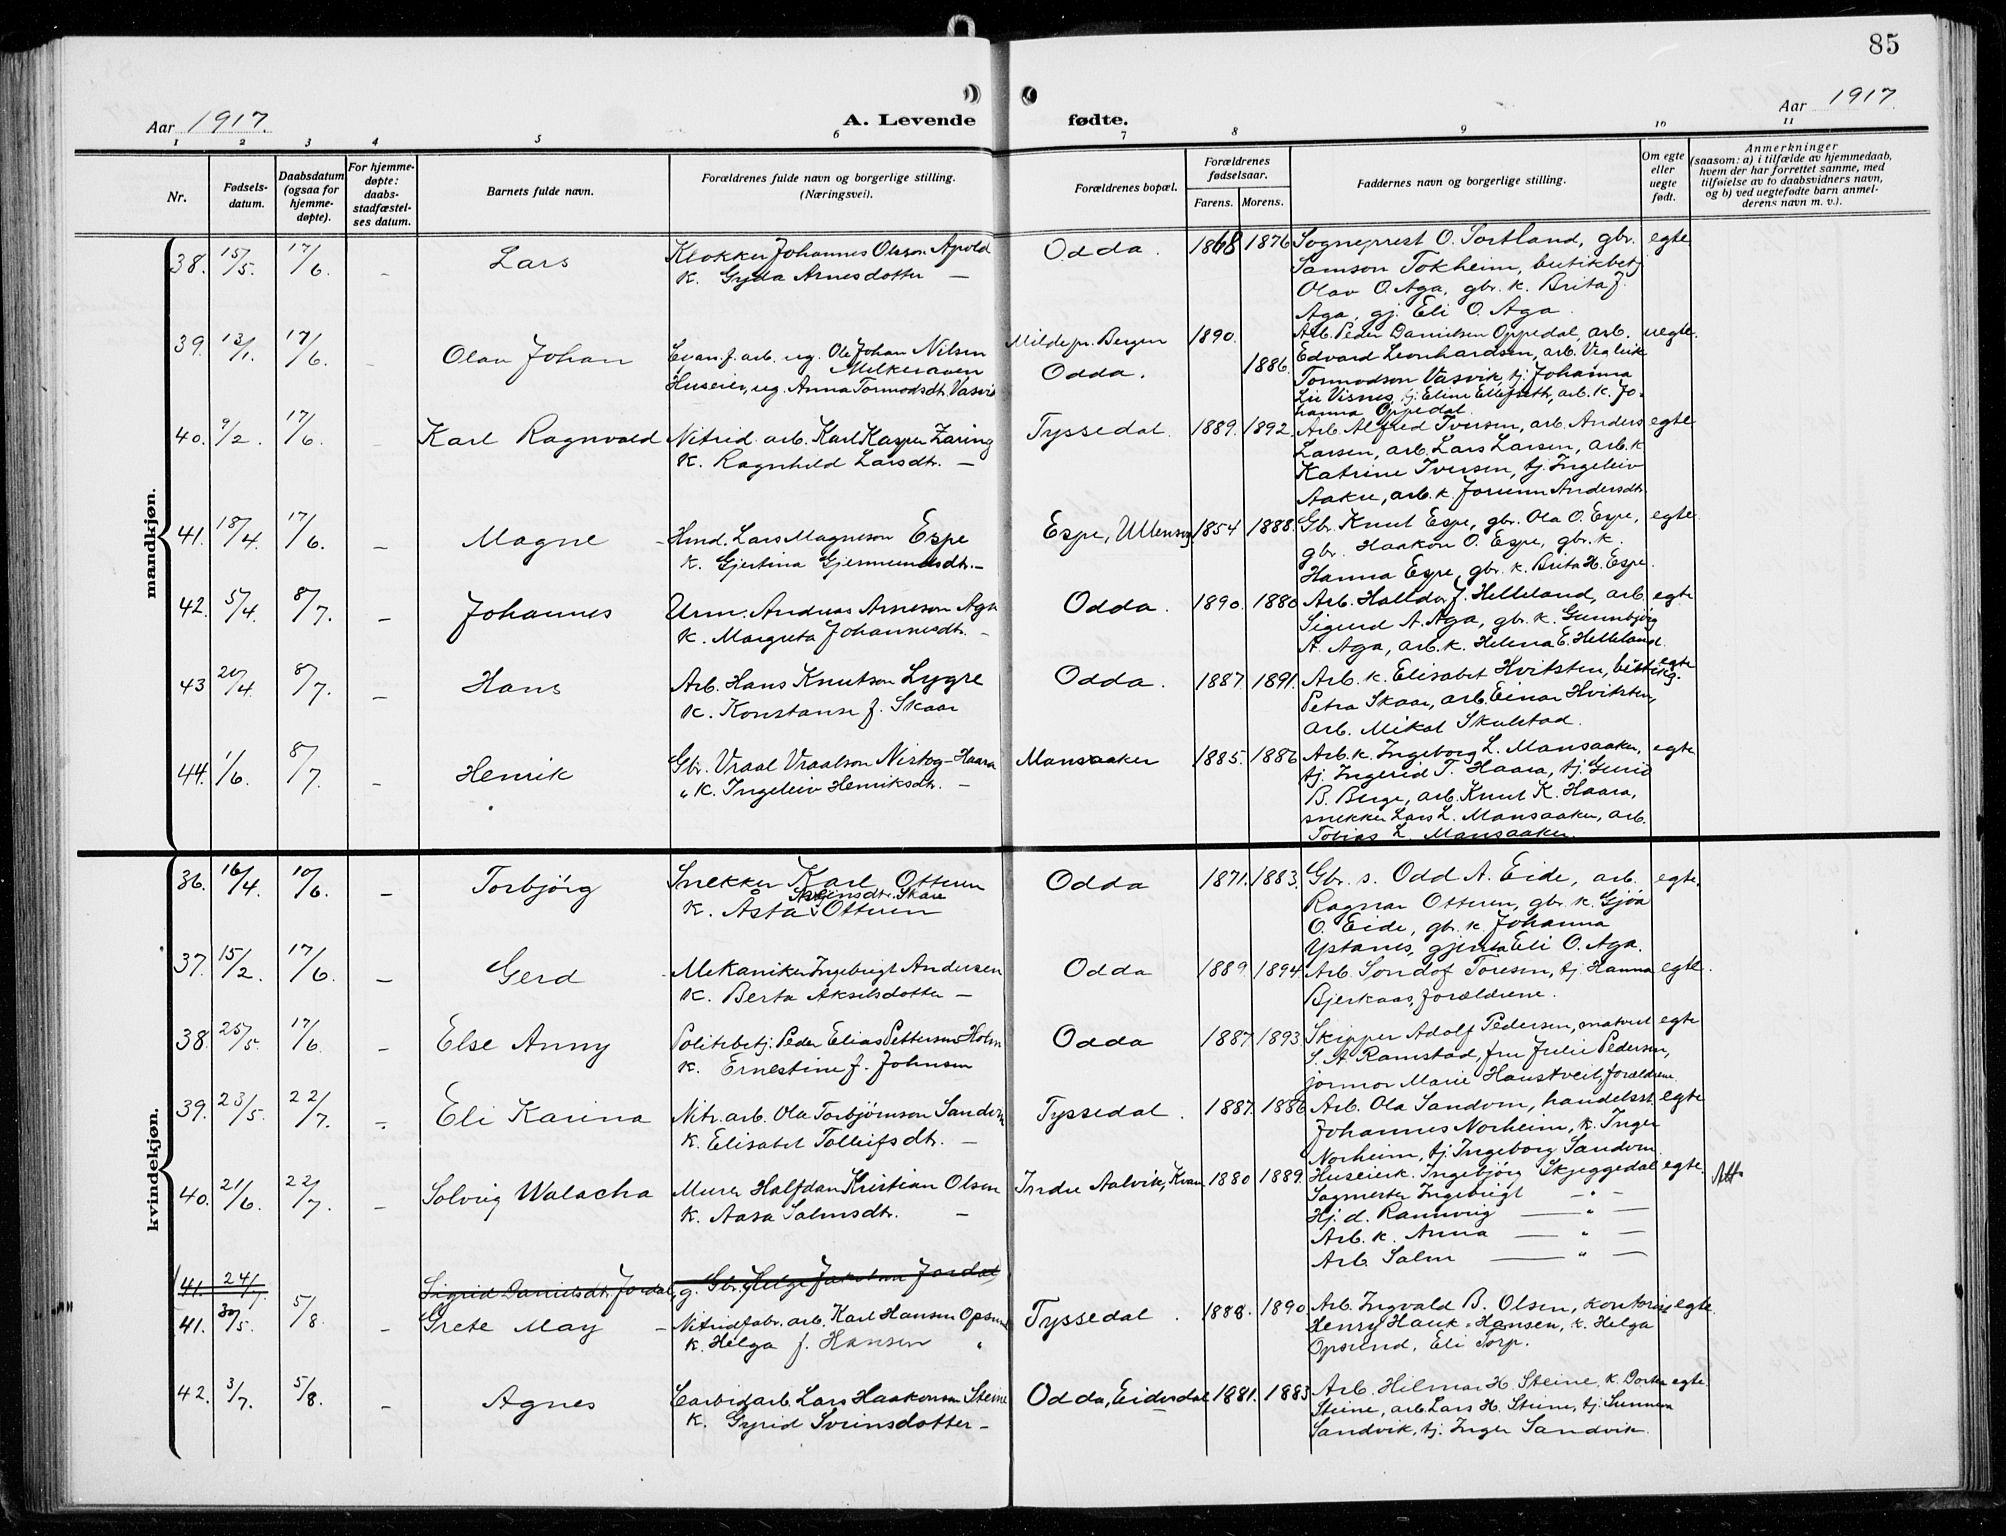 85
Aar 1917.
A. Levende fødte.
Aar 1917.
1 2 3 4 5 6 7 8 9 10 11
Nr.
Fødsels-
datum.
Daabsdatum
(ogsaa for
hjemme-
døpte).
For hjemme-
døpte:
daabs
stadfæstel-
ses datum.
Barnets fulde navn.
Forældrenes fulde navn og borgerlige stilling.
(Næringsvei).
Forældrenes bopæl.
Forældrenes
fødselsaar.
Farens. Morens.
Faddernes navn og borgerlige stilling.
Om egte
eller
uegte
født.
Anmerkninger
(saasom: a) i tilfælde av hjemmedaab,
hvem der har forrettet samme, med
tilføielse av to daabsvidners navn,
og b) ved uegtefødte barn anmel-
derens navn m. v.).
mandkjøn.
38. 15/5. 17/6. - Lars Klokker Johannes Olsson Apold Odda. 1868 1876 Sogneprest O. Tortland, gbr. egte
K. Gyda Arnesdotter — Samson Tokheim, butikbetj
Olav O. Aga, gbr. k. Brita J.
Aga, gj. Eli O. Aga.
39. 13/1. 17/6. - Olav Johan Evan. f. arb. ug. Ole Johan Nilsen Milde pr. Bergen 1890. Arb. Peder Danielsen Oppedal, arb. uegte.
Milkeraven Edvard Leonhardsen, arb. Vegleik
Huseier, ug. Anna Tormodsdt. Vasvik Odda. 1886. Tormodson Vasvik, tj. Johanna
Lie Visnes, tj. Eline Ellefseth, arb. k. Jo-
hanna Oppedal.
40. 9/2. 17/6. - Karl Ragnvald Nitrid arb. Karl Kasper Zaring Tyssedal. 1889. 1892. Arb. Alfred Iversen, arb. Anders egte
K. Ragnhild Larsdt. — Larsen, arb. Lars Larsen, arb. k
Katrine Iversen, tj. Ingeleiv
Aakre, arb. k. Jorunn Andersdt.
41. 18/4. 17/6. - Magne - Hmd. Lars Magneson Espe Espe, Ullensvg 1854 1888. Gbr. Knut Espe, gbr. Ola O. Espe, egte
K. Gjertina Gjermundsdt. — gbr. Haakon O. Espe, gbr. k.
Hanna Espe, gbr. k. Brita H. Espe.
42. 5/4. 8/7. - Johannes Urm. Andreas Arneson Aga Odda. 1890. 1880 Arb. Halldor J. Helleland, arb. egte
K. Margreta Johannesdt. - Sigurd A. Aga, gbr. k. Gunnbjørg
A. Aga, arb. k. Helena E. Helleland.
43 20/4. 8/7. - Hans Arb. Hans Knutson Lygre Odda. 1887. 1891. Arb. k. Elisabet Hvitsten, egte
K. Konstanse f. Skaar Petra Skaar, arb. Einar Hvitsten,
arb. Mikal Skulstad.
44. 1/6. 8/7. - Henrik Gbr. Vraal Vraalson Nistog-Haara Mansaaker 1885. 1886 Arb. k. Ingeborg L. Mansaaker, egte
„ K. Ingeleiv Henriksdt. — tj. Ingerid T. Haara, tj. Gurid
B. Berge, arb. Knut K. Haara,
snekker Lars L. Mansaaker, arb.
Tobias L. Mansaaker.
kvindekjøn.
36. 16/4. 10/6. - Torbjørg Snekker Karl Otteren Odda 1871. 1883. Gbr. s. Odd A. Eide, arb. egte.
Skare
K. Asta Otteren Ragnar Otteren, gbr. k. Gjøa
O. Eide, gbr. k. Johanna
Ystanes, gjenta Eli O. Aga.
37. 15/2. 17/6. - Gerd - Mekaniker Ingebrigt Andersen Odda 1889. 1894. Arb. Sondof Toresen, tj. Hanna egte.
K. Berta Akselsdotter — Bjerkaas, forældrene.
38. 25/5. 17/6. - Else Anny Politibetj. Peder Elias Pettersen-Holm Odda 1887. 1893. Skipper Adolf Pedersen, egte
K. Ernestine f. Johnsen S. A. Ramstad, fru Julie Pedersen,
jormor Marie Haustveit, forældrene.
39. 23/5. 22/7. - Eli Karina Nitr. arb. Ola Torbjørnson Sandven Tyssedal. 1887. 1886. Arb. Ola Sandven, handelsst. egte
K. Elisabet Tolleifsdt. — Johannes Norheim, k. Inger
Norheim, tj. Ingeborg Sandven.
40. 21/6. 22/7. - Solveig Walacha Murer Halfdan Kristian Olsen Indre Aalvik, Kvam 1880 1889. Huseierk. Ingebjørg Skjeggedal egte.
K. Aasa Salmsdt. — Sagmester Ingebrigt — „ —
Hj. d. Rannveig — „ —
Arb. k. Anna — „ —
Arb. Salm — „ —
41. 24/1. Sigrid Danielsdt. Jordal, g. Gbr. Helge Jakobson Jordal
41. 30/5. 5/8. - Grete May - Nitridfabr. arb. Karl Hansen Opsund Tyssedal. 1888. 1890. Arb. Ingvald B. Olsen, kontorist egte.
K. Helga f. Hansen „ Henry Hauk-Hansen, k. Helga
Opsund, Eli Torp.
42. 3/7. 5/8. - Agnes Carbidarb. Lars Haakonson Steine Odda, Eidesdal 1881. 1883. Arb. Hilmar H. Steine, k. Dortea egte.
K. Gyrid Sveinsdotter — Steine, arb. Lars H. Steine, tj. Sunneva
Sandvik, tj. Inger Sandvik.